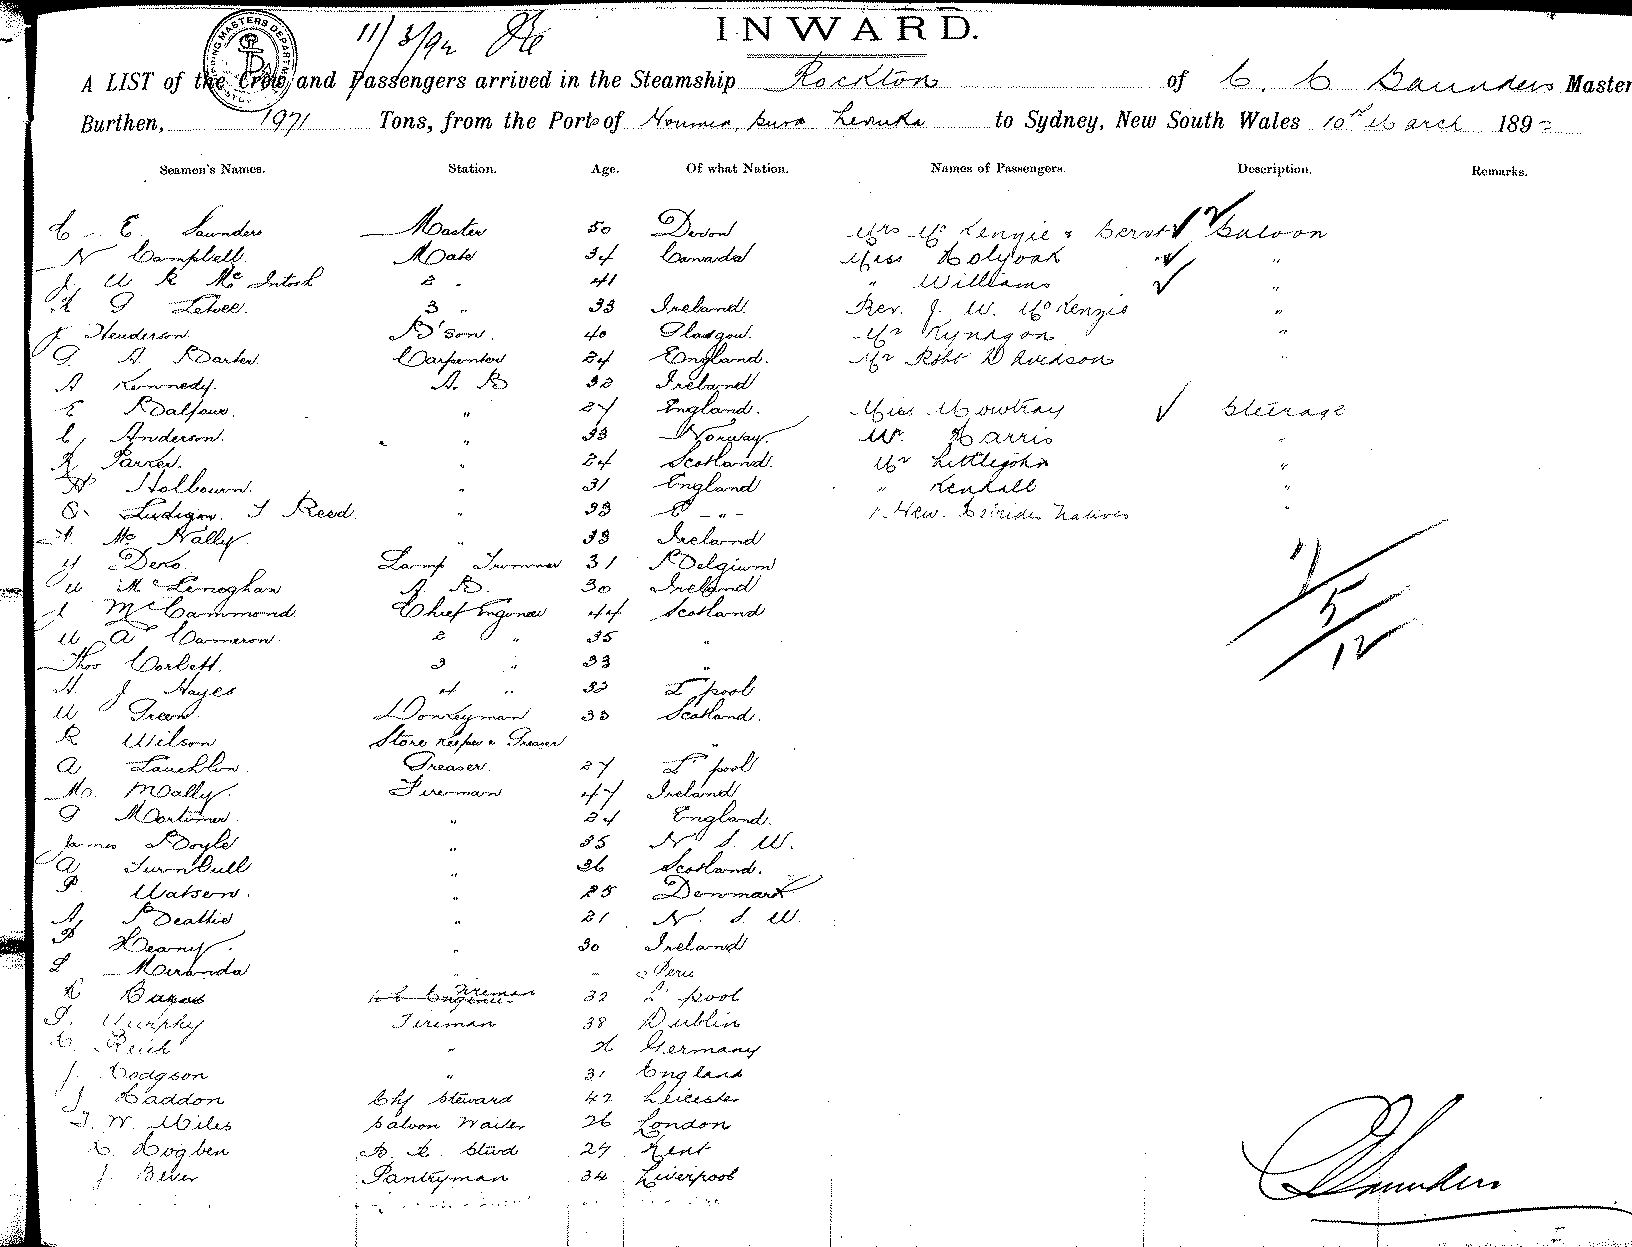 11/3/92
INWARD.
A LIST of the Crew and Passengers arrived in the Steamship Rockton of C. C Saunders Master
Burthen, 1971 Tons, from the Port of Noumea, Suva Levuka to Sydney, New South Wales 10th March 189
Seamen's Names. Station. Age. Of what Nation. Names of Passengers. Description. Remarks.
C. E. Saunders Master 50 Devon Mrs McKenzie & Servt Saloon
N Campbell. Mate 34 Canada Miss Holyoak "
J. W R McIntosh 2 " 41 " Williams "
3 " 33 Ireland. Rev. J. W. McKenzie "
J Henderson B'son. 40 Glasgow. Mr Kynagon "
G A Barter Carpenter 24 England. Mr Robt Davidson "
A Kennedy. A. B 32 Ireland
E Balfour. " 27 England. Miss Mowbray Steerage
C. Anderson. " 33 Norway. Mr. Harris "
R Parker. " 24 Scotland. Mr Littlejohn "
H Holbourn. " 31 England " Kendall "
J Reed. " 33 " 1 New Hebrides Natives "
McNally. " 33 Ireland
Lamp Trimmer 31 Belgium
W McLenoghan A. B. 30 Ireland
J McCammond. Chief Engineer 44 Scotland
W A Cameron. 2 " 35 "
Thos Corbett. 3 " 33 "
H. J Hayes 4 " 32 L'pool
W Green. Donkeyman 33 Scotland.
R Wilson Store Keeper & Greaser "
A Lauchlin. Greaser. 27 L'pool
Mc. Mally. Fireman 47 Ireland
G Mortimer. " 24 England.
James Boyle " 35 N. S. W.
A Turnbull " 36 Scotland.
P. Watson. " 25 Denmark
A, Beattie " 21 N. S. W.
P Heany. " 30 Ireland
L Miranda " - Peru
R Fireman 32 L'pool
P. Murphy Fireman 38 Dublin
C. Reich " 26 Germany
J. Hodgson " 31 England
J Haddon Chf Steward 42 Leicester
T. W. Miles Saloon Waiter 26 London
C. Hogben B. R. Stwd 27 Kent
J. Bever Pantryman 34 Liverpool
7/5/12
C Saunders